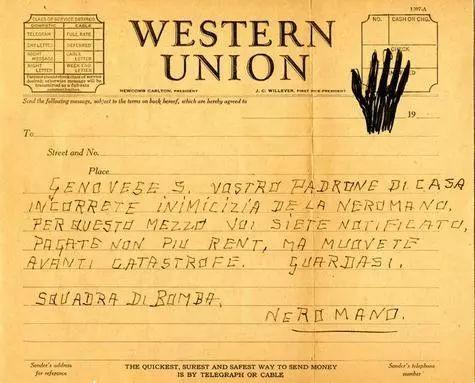 1207-A
CLASS OF SERVICE DESIRED
DOMESTIC CABLE
TELEGRAM FULL RATE
DAY LETTER DEFERRED
NIGHT MESSAGE CABLE LETTER
NIGHT LETTER WEEK END LETTER
WESTERN
UNION
NO. CASH OR CHG.
CHECK
NEWCOMB CARLTON, PRESIDENT J. C. WILLEVER, FIRST VICE-PRESIDENT
Send the following message, subject to the terms on back hereof, which are hereby agreed to
19
To
Street and No.
Place
GENOVESE S. VOSTRO PADRONE DI CASA
INCORRETE INIMICIZIA DE LA NEROMANO.
PER QUESTO MEZZO VOI SIETE NOTIFICATO,
PAGATE NON PIU RENT, MA MUOVETE
AVANTI CATASTROFE. GUARDASI.
SQUADRA DI BOMBA.
NEROMANO.
Sender's address
for reference
THE QUICKEST, SUREST AND SAFEST WAY TO SEND MONEY
IS BY TELEGRAPH OR CABLE
Sender's telephone
number